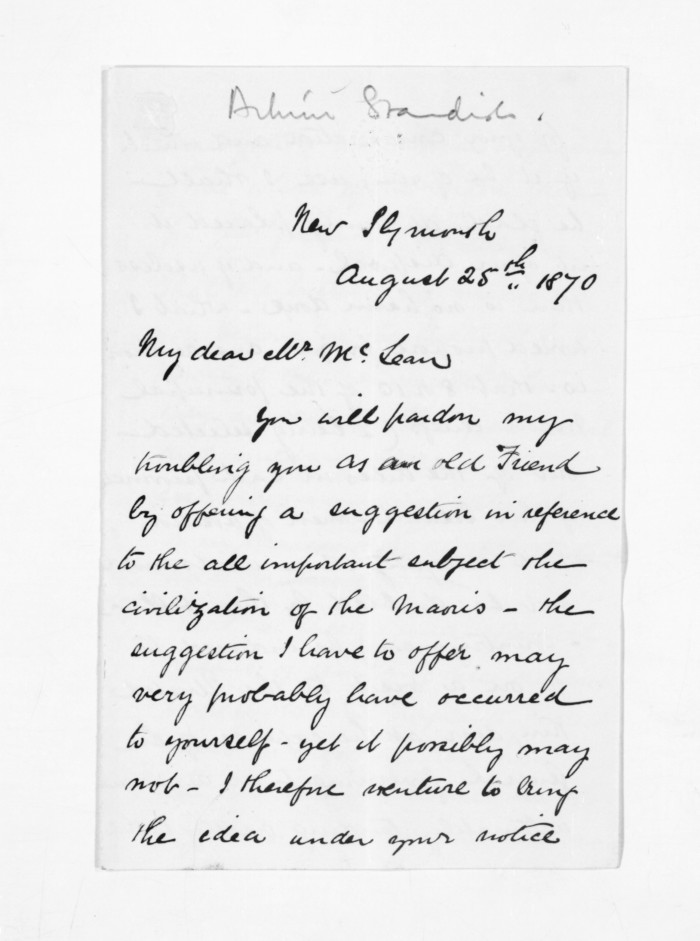 Arthur Standish.
New Plymouth
August 25th 1870
My dear Mr. Mc Lean
You will pardon my
troubling you as an old Friend
by offering a suggestion in reference
to the all important subject the
civilization of the Maoris - the
suggestion I have to offer may
very probably have occurred
to yourself - yet it possibly may
not - I therefore venture to bring
the idea under your notice